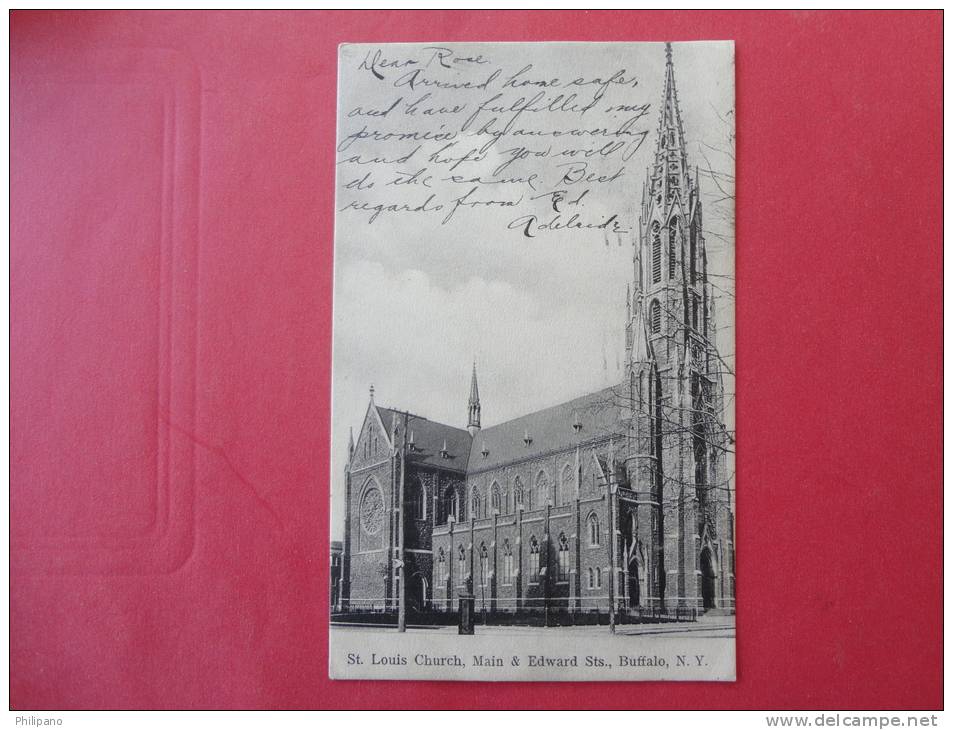 Dear Rose.
Arrived home safe,
and have fulfilled my
promise by answering
and hope you will
do the same. Best
regards from Ed.
Adelaide.
St. Louis Church, Main & Edward Sts., Buffalo, N. Y.
Philipano
www.delcampe.net